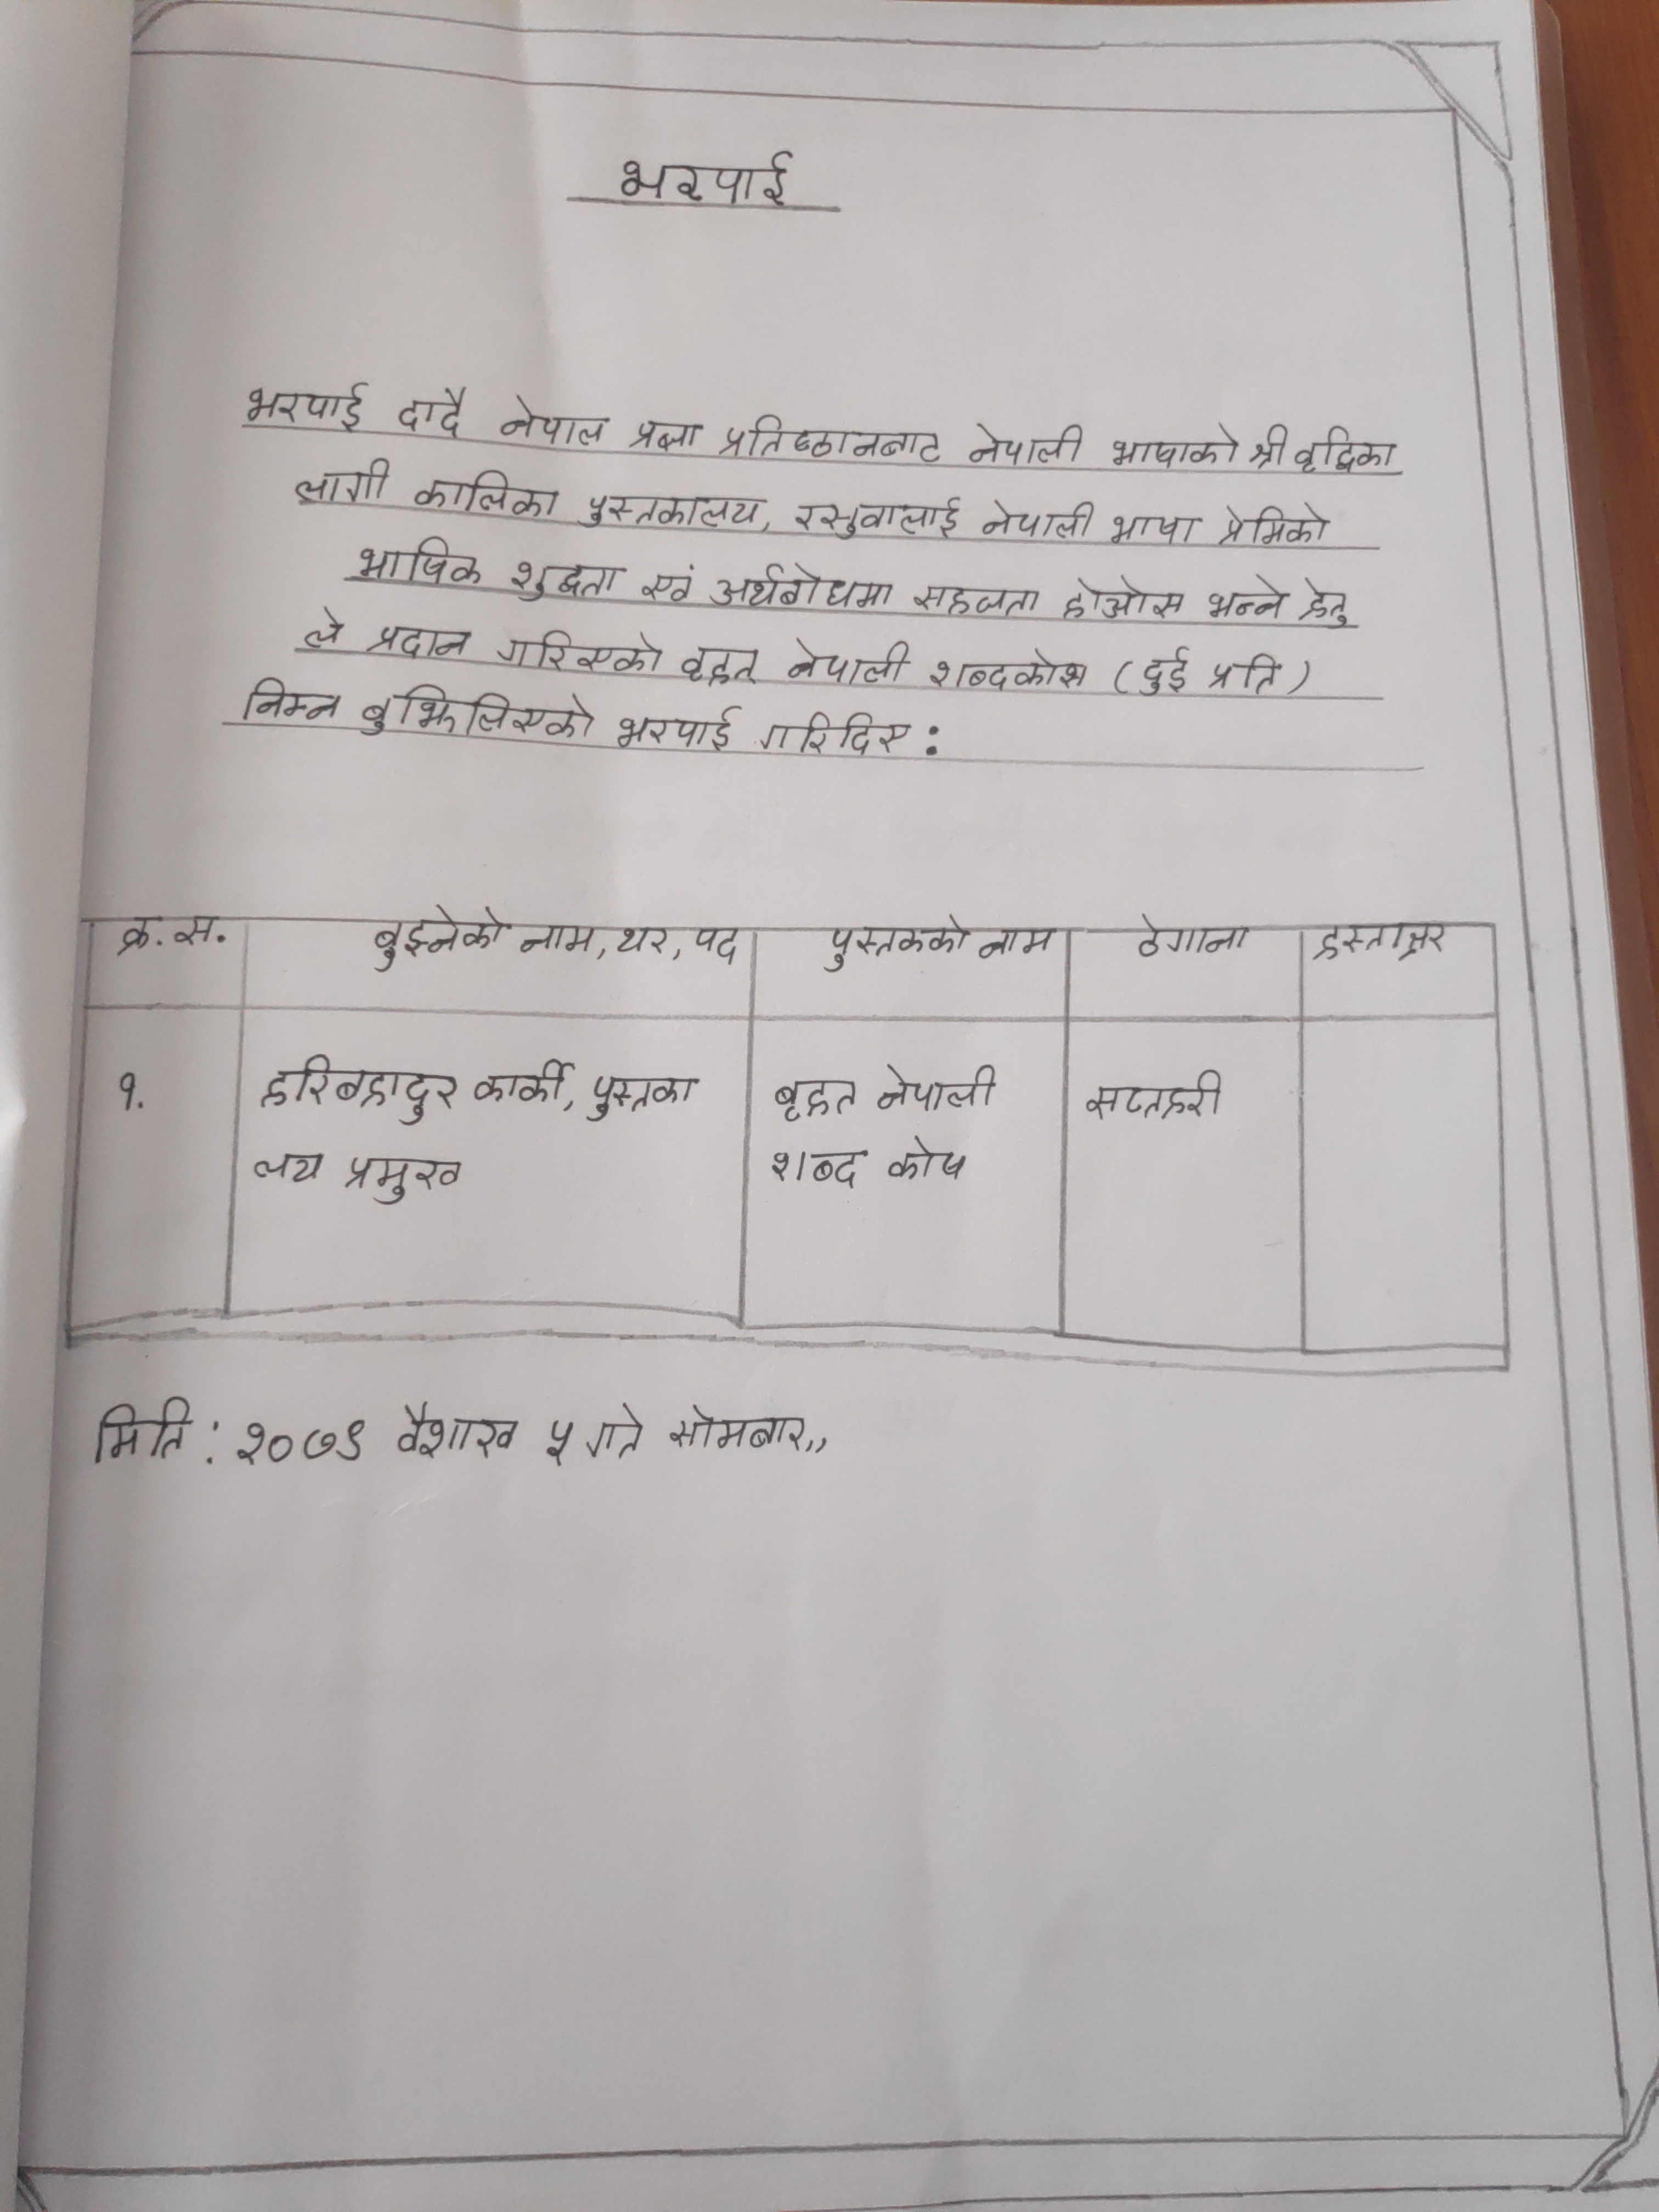 भरपाई
भरपाई दादै नेपाल प्रज्ञा प्रतिष्ठानबाट नेपाली भाषाको श्री वृद्धिका
लागी कालिका पुस्तकालय, रसुवालाई नेपाली भाषा प्रेमिको
भाषिक शुद्धता एवं अर्थबोधमा सहजता होओस भन्ने हेतु
ले प्रदान गरिएको वृहत् नेपाली शब्दकोश (दुई प्रति)
निम्न बुझिलिएको भरपाई गरिदिए :
क्र. स. बुझ्नेको नाम, थर, पद पुस्तकको नाम ठेगाना हस्ताक्षर
१. हरिबहादुर कार्की, पुस्तका बृहत नेपाली सप्तहरी
लय प्रमुख शब्द कोष
मिति : २०७९ वैशाख ५ गते सोमबार,,